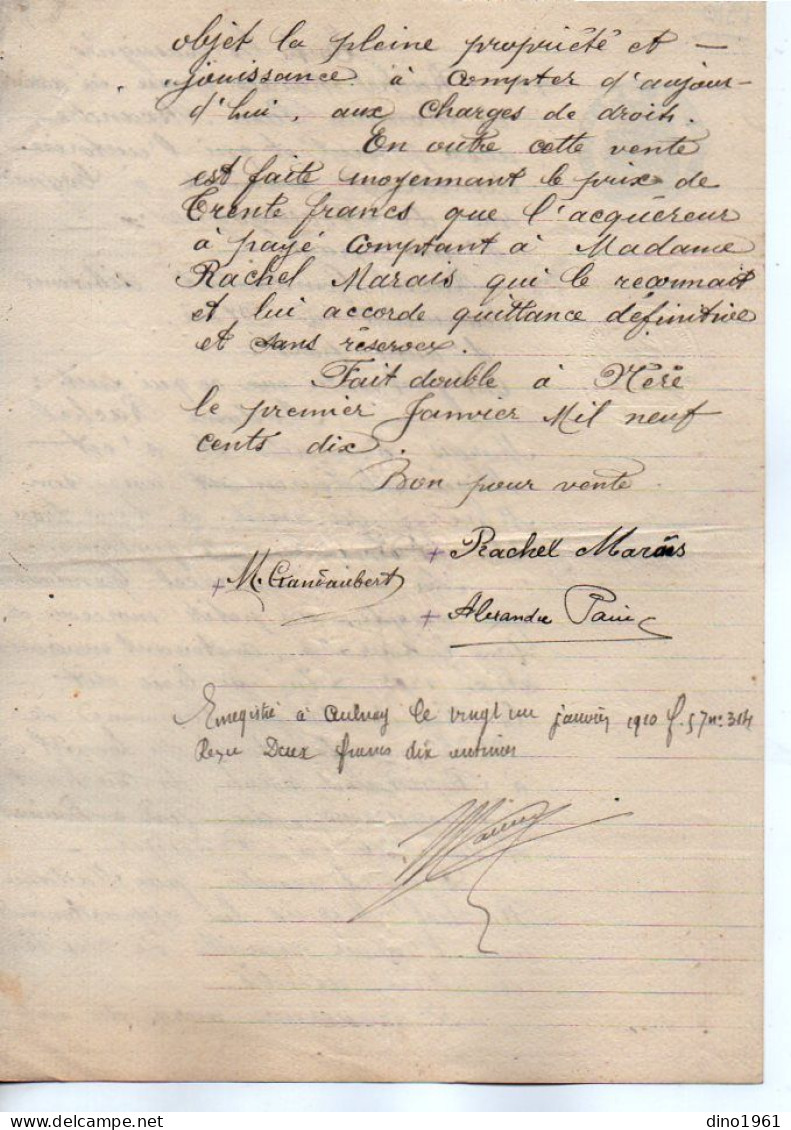 objet la pleine propriété et —
jouissance à compter d'aujour-
d'hui, aux charges de droits.
En outre cette vente
est faite moyennant le prix de
Trente francs que l'acquéreur
à payé comptant à Madame
Rachel Marais qui le reconnait
et lui accorde quittance définitive
et sans réserves.
Fait double à Néré
le premier Janvier Mil neuf
cents dix.
Bon pour vente
+ Rachel Marais
+ M. Grandaubert
+ Alexandre
Enregistré à Aulnay le vingt un janvier 1910 f. 57 n° 314
Reçu Deux francs dix centimes
dino1961